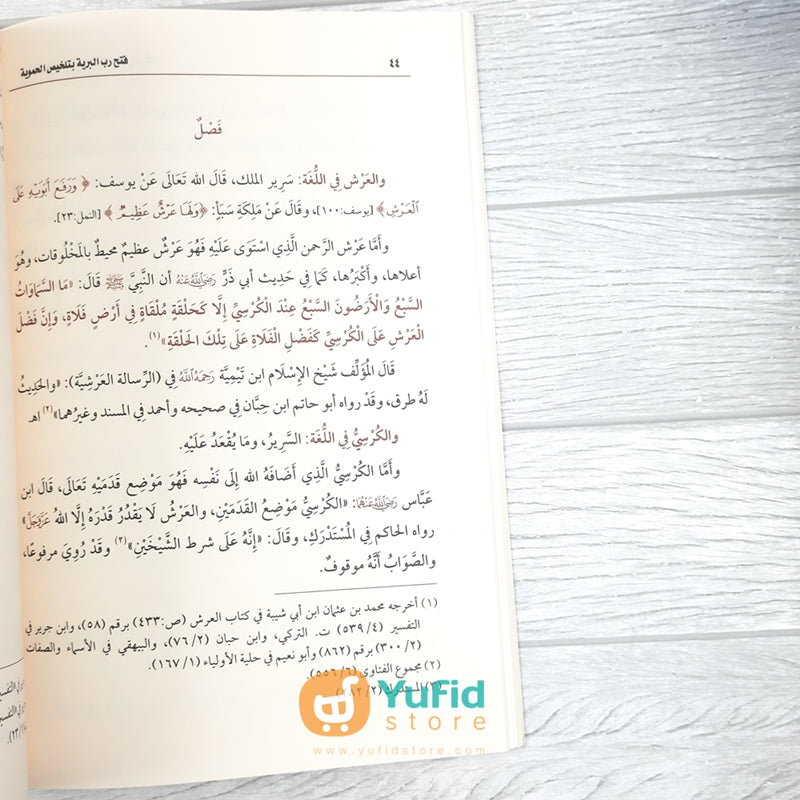 ٤٤
فتح رب البرية بتلخيص الحموية
فَصْلٌ
والعَرْش فِي اللُّغَة: سَرِير الملك، قَالَ الله تَعَالَى عَنْ يوسف: ﴿وَرَفَعَ أَبَوَيْهِ عَلَى
الْعَرْشِ﴾ [يوسف:١٠٠]، وقَالَ عَنْ مَلِكَةِ سَبَأ: ﴿وَلَهَا عَرْشٌ عَظِيمٌ﴾ [النمل:٢٣].
وأَمَّا عَرْش الرَّحمن الَّذِي اسْتَوَى عَلَيْهِ فَهُوَ عَرْشٌ عظيمٌ محيطٌ بالمَخْلُوقات، وهُوَ
أعلاها، وأَكْبَرُها، كَمَا فِي حَدِيث أبي ذَرٍّ رَضِيَ اللَّهُ عَنْهُ أن النَّبِيَّ ﷺ قَالَ: «مَا السَّمَاوَاتُ
السَّبْعُ وَالْأَرَضُونَ السَّبْعُ عِنْدَ الْكُرْسِيِّ إِلَّا كَحَلْقَةٍ مُلْقَاةٍ فِي أَرْضٍ فَلَاةٍ، وَإِنَّ فَضْلَ
الْعَرْشِ عَلَى الْكُرْسِيِّ كَفَضْلِ الْفَلَاةِ عَلَى تِلْكَ الحَلْقَةِ»(١).
قَالَ المُؤَلِّف شَيْخ الإِسْلَام ابن تَيْمِيَّة رَحِمَهُ اللَّهُ فِي (الرِّسالة العَرْشِيَّة): «والحَدِيثُ
لَهُ طرق، وقَدْ رواه أبو حاتم ابن حِبَّان فِي صحيحه وأحمد في المسند وغيرُهما»(٢) اهـ
والكُرْسِيُّ فِي اللُّغَة: السَّرِيرُ، ومَا يُقْعَدُ عَلَيْهِ.
وأَمَّا الكُرْسِيُّ الَّذِي أَضَافَهُ الله إلَى نَفْسِه فَهُوَ مَوْضِع قَدَمَيْهِ تَعَالَى، قَالَ ابن
عَبَّاس رَضِيَ اللَّهُ عَنْهُمَا: «الكُرْسِيُّ مَوْضِعُ القَدَمَيْنِ، والعَرْشُ لَا يَقْدُرُ قَدْرَهُ إِلَّا اللهُ عَزَّوَجَلَّ»
رواه الحاكم فِي المُسْتَدْرَكِ، وقَالَ: «إِنَّهُ عَلَى شرط الشَّيْخَيْنِ»(٣) وقَدْ رُوِيَ مرفوعًا،
والصَّوَابُ أَنَّهُ موقوفٌ.
(١) أخرجه محمد بن عثمان ابن أبي شيبة في كتاب العرش (ص:٤٣٣) برقم (٥٨)، وابن جرير في
التفسير (٤/ ٥٣٩) ت. التركي، وابن حبان (٢/ ٧٦)، والبيهقي في الأسماء والصفات
(٢/ ٣٠٠) برقم (٨٦٢) وأبو نعيم في حلية الأولياء (١/ ١٦٧).
(٢) مجموع الفتاوى (٦/ ٥٥٦).
(٣) المستدرك (٢/ ٢٨٢)
YuFid
store
www.yufidstore.com